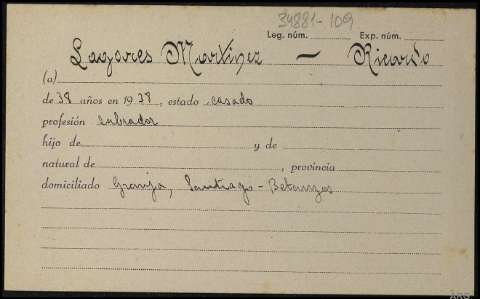 34881-109
Leg. núm. Exp. núm.
Lagares Martínez — Ricardo
(a)
de 38 años en 1938, estado casado
profesión labrador
hijo de y de
natural de , provincia
domiciliado Granja, Santiago - Betanzos